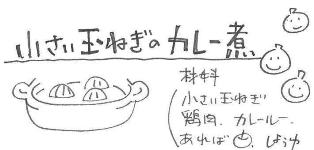 小さい玉ねぎのカレー煮
材料
小さい玉ねぎ
鶏肉、カレールー、
あれば、しょうゆ